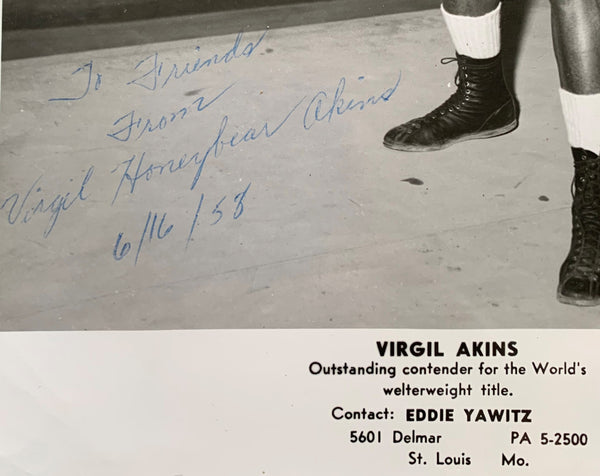 To Friends
From
Virgil Honeybear Akins
6/16/58
VIRGIL AKINS
Outstanding contender for the World's
welterweight title.
Contact: EDDIE YAWITZ
5601 Delmar PA 5-2500
St. Louis Mo.